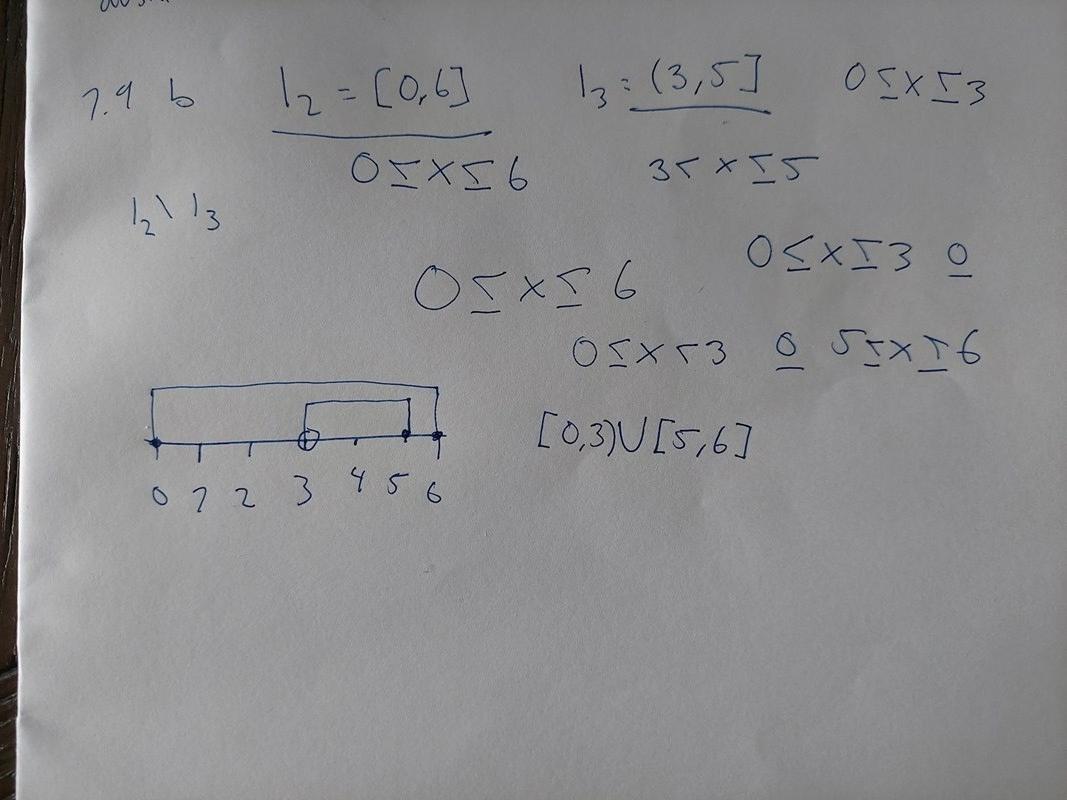 1.9 b I2 = [0,6] I3 : (3,5] 0≤x≤3
0≤x≤6 3<x≤5
I2\I3
0≤x≤3 0
0≤x≤6
0≤x<3 0 5≤x≤6
[0,3)∪[5,6]
0 1 2 3 4 5 6